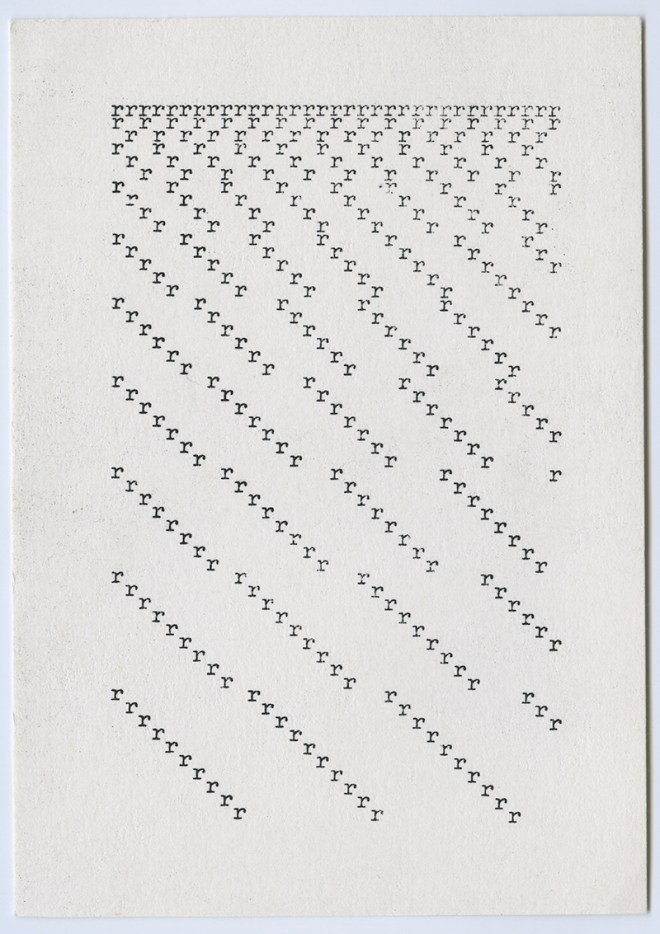 rrrrrrrrrrrrrrrrrrrrrrrrrrrrrrrrr
r r r r r r r r r r r r r r r r r
 r r r r r r r r r r r r r r r r
r  r  r  r  r  r  r  r  r  r  r
 r  r  r  r  r  r  r  r  r  r  r
  r  r  r  r  r  r  r  r  r  r  r
r   r   r   r   r   r   r   r   r
 r   r   r   r   r   r   r   r
  r   r   r   r   r   r   r   r
   r   r   r   r   r   r   r   r
r    r    r    r    r    r    r
 r    r    r    r    r    r    r
  r    r    r    r    r    r    r
   r    r    r    r    r    r
    r    r    r    r    r    r
r     r     r     r     r     r
 r     r     r     r     r     r
  r     r     r     r     r     r
   r     r     r     r     r
    r     r     r     r     r
     r     r     r     r     r
r      r      r      r      r
 r      r      r      r      r
  r      r      r      r      r
   r      r      r      r      r
    r      r      r      r      r
     r      r      r      r
      r      r      r      r
r       r       r       r       r
 r       r       r       r
  r       r       r       r
   r       r       r       r
    r       r       r       r
     r       r       r       r
      r       r       r       r
       r       r       r       r
r        r        r        r
 r        r        r        r
  r        r        r        r
   r        r        r        r
    r        r        r        r
     r        r        r        r
      r        r        r
       r        r        r
        r        r        r
r         r         r         r
 r         r         r         r
  r         r         r         r
   r         r         r
    r         r         r
     r         r         r
      r         r         r
       r         r         r
        r         r         r
         r         r         r